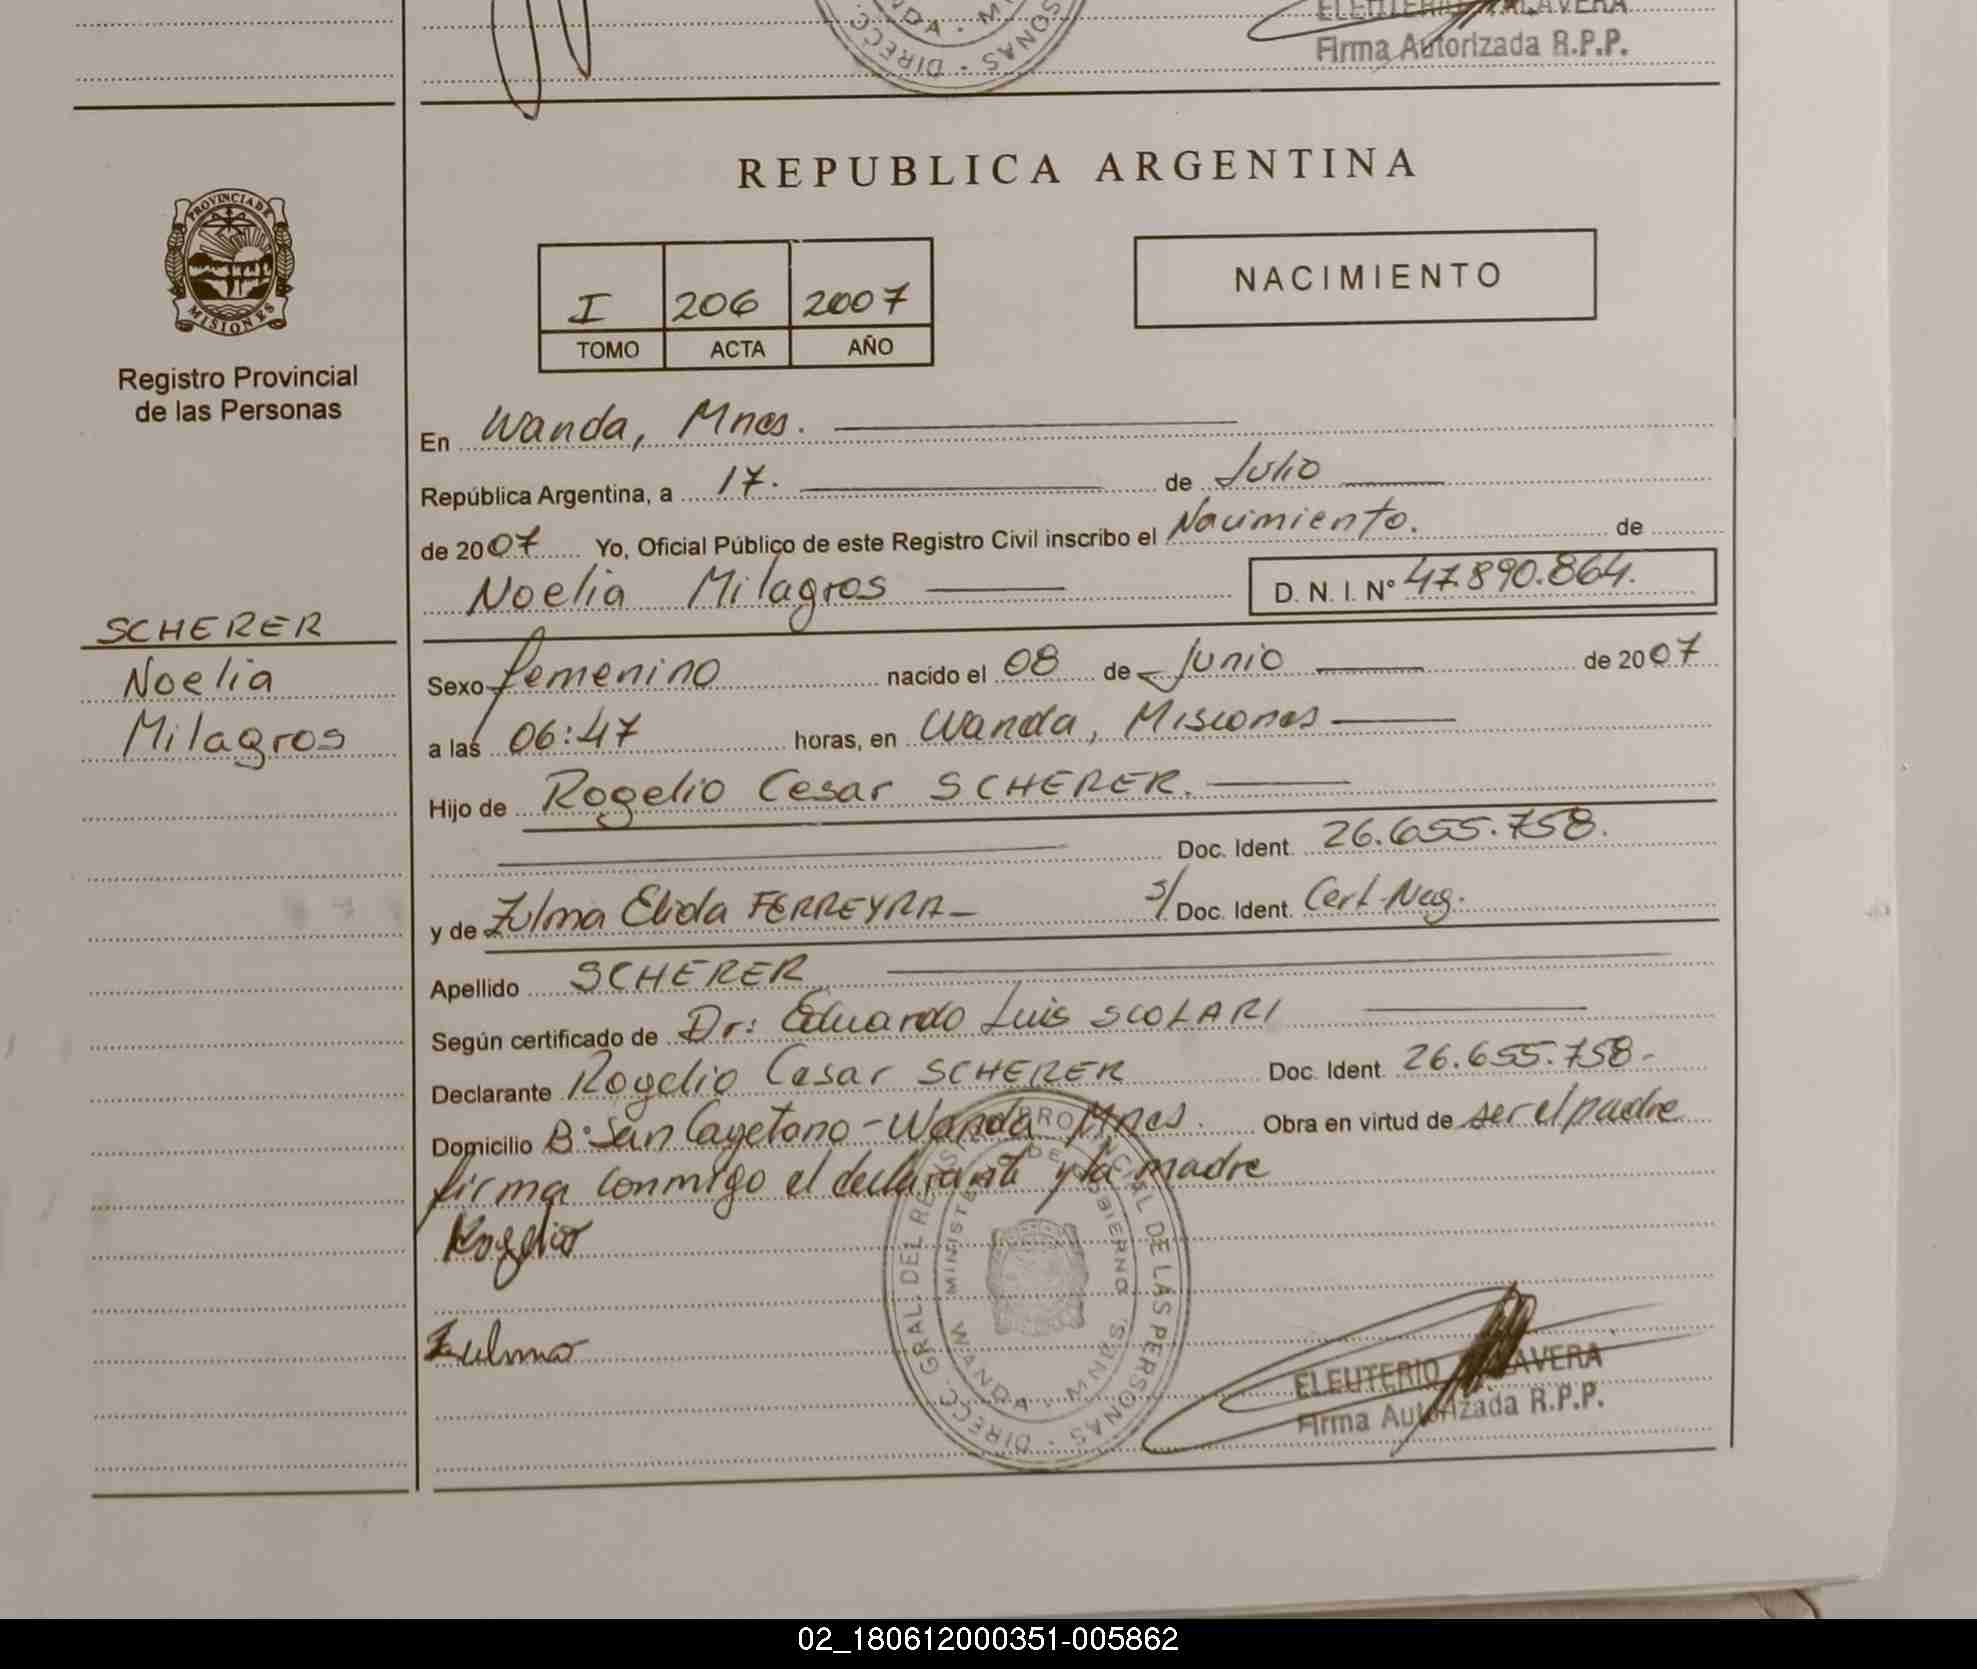 ELEUTERIO TALAVERA
Firma Autorizada R.P.P.
DIRECC. PERSONAS
PROVINCIA DE
MISIONES
Registro Provincial
de las Personas
SCHERER
Noelia
Milagros
REPUBLICA ARGENTINA
I 206 2007
TOMO ACTA AÑO
NACIMIENTO
En Wanda, Mnes.
República Argentina, a 17. de Julio
de 2007 Yo, Oficial Público de este Registro Civil inscribo el Nacimiento. de
Noelia Milagros D. N. I. N° 47.890.864.
Sexo femenino nacido el 08 de Junio de 2007
a las 06:47 horas, en Wanda, Misiones
Hijo de Rogelio Cesar SCHERER.
Doc. Ident. 26.655.758.
y de Zulma Elida FERREYRA- s/ Doc. Ident. Cert. Neg.
Apellido SCHERER
Según certificado de Dr: Eduardo Luis SCOLARI
Declarante Rogelio Cesar SCHERER Doc. Ident. 26.655.758-
Domicilio B° San Cayetano-Wanda Mnes. Obra en virtud de ser el padre
firma conmigo el declarante y la madre
Rogelio
Zulma
DIRECC. GRAL. DEL REGISTRO PROVINCIAL DE LAS PERSONAS
MINISTERIO DE GOBIERNO
WANDA - MNES.
ELEUTERIO TALAVERA
Firma Autorizada R.P.P.
02_180612000351-005862